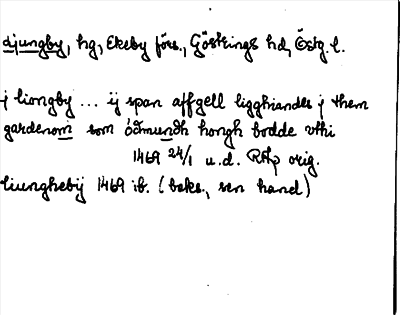 djungby, hg, Ekeby förs., Göstrings hd, Östg. l.
j liongby ... ij span affgell ligghiandes j them
gardenom som ödmundh hongh bodde vthi
1469 24/1 u.d. RAp orig.
liunghebij 1469 ib. (baks., sen hand)